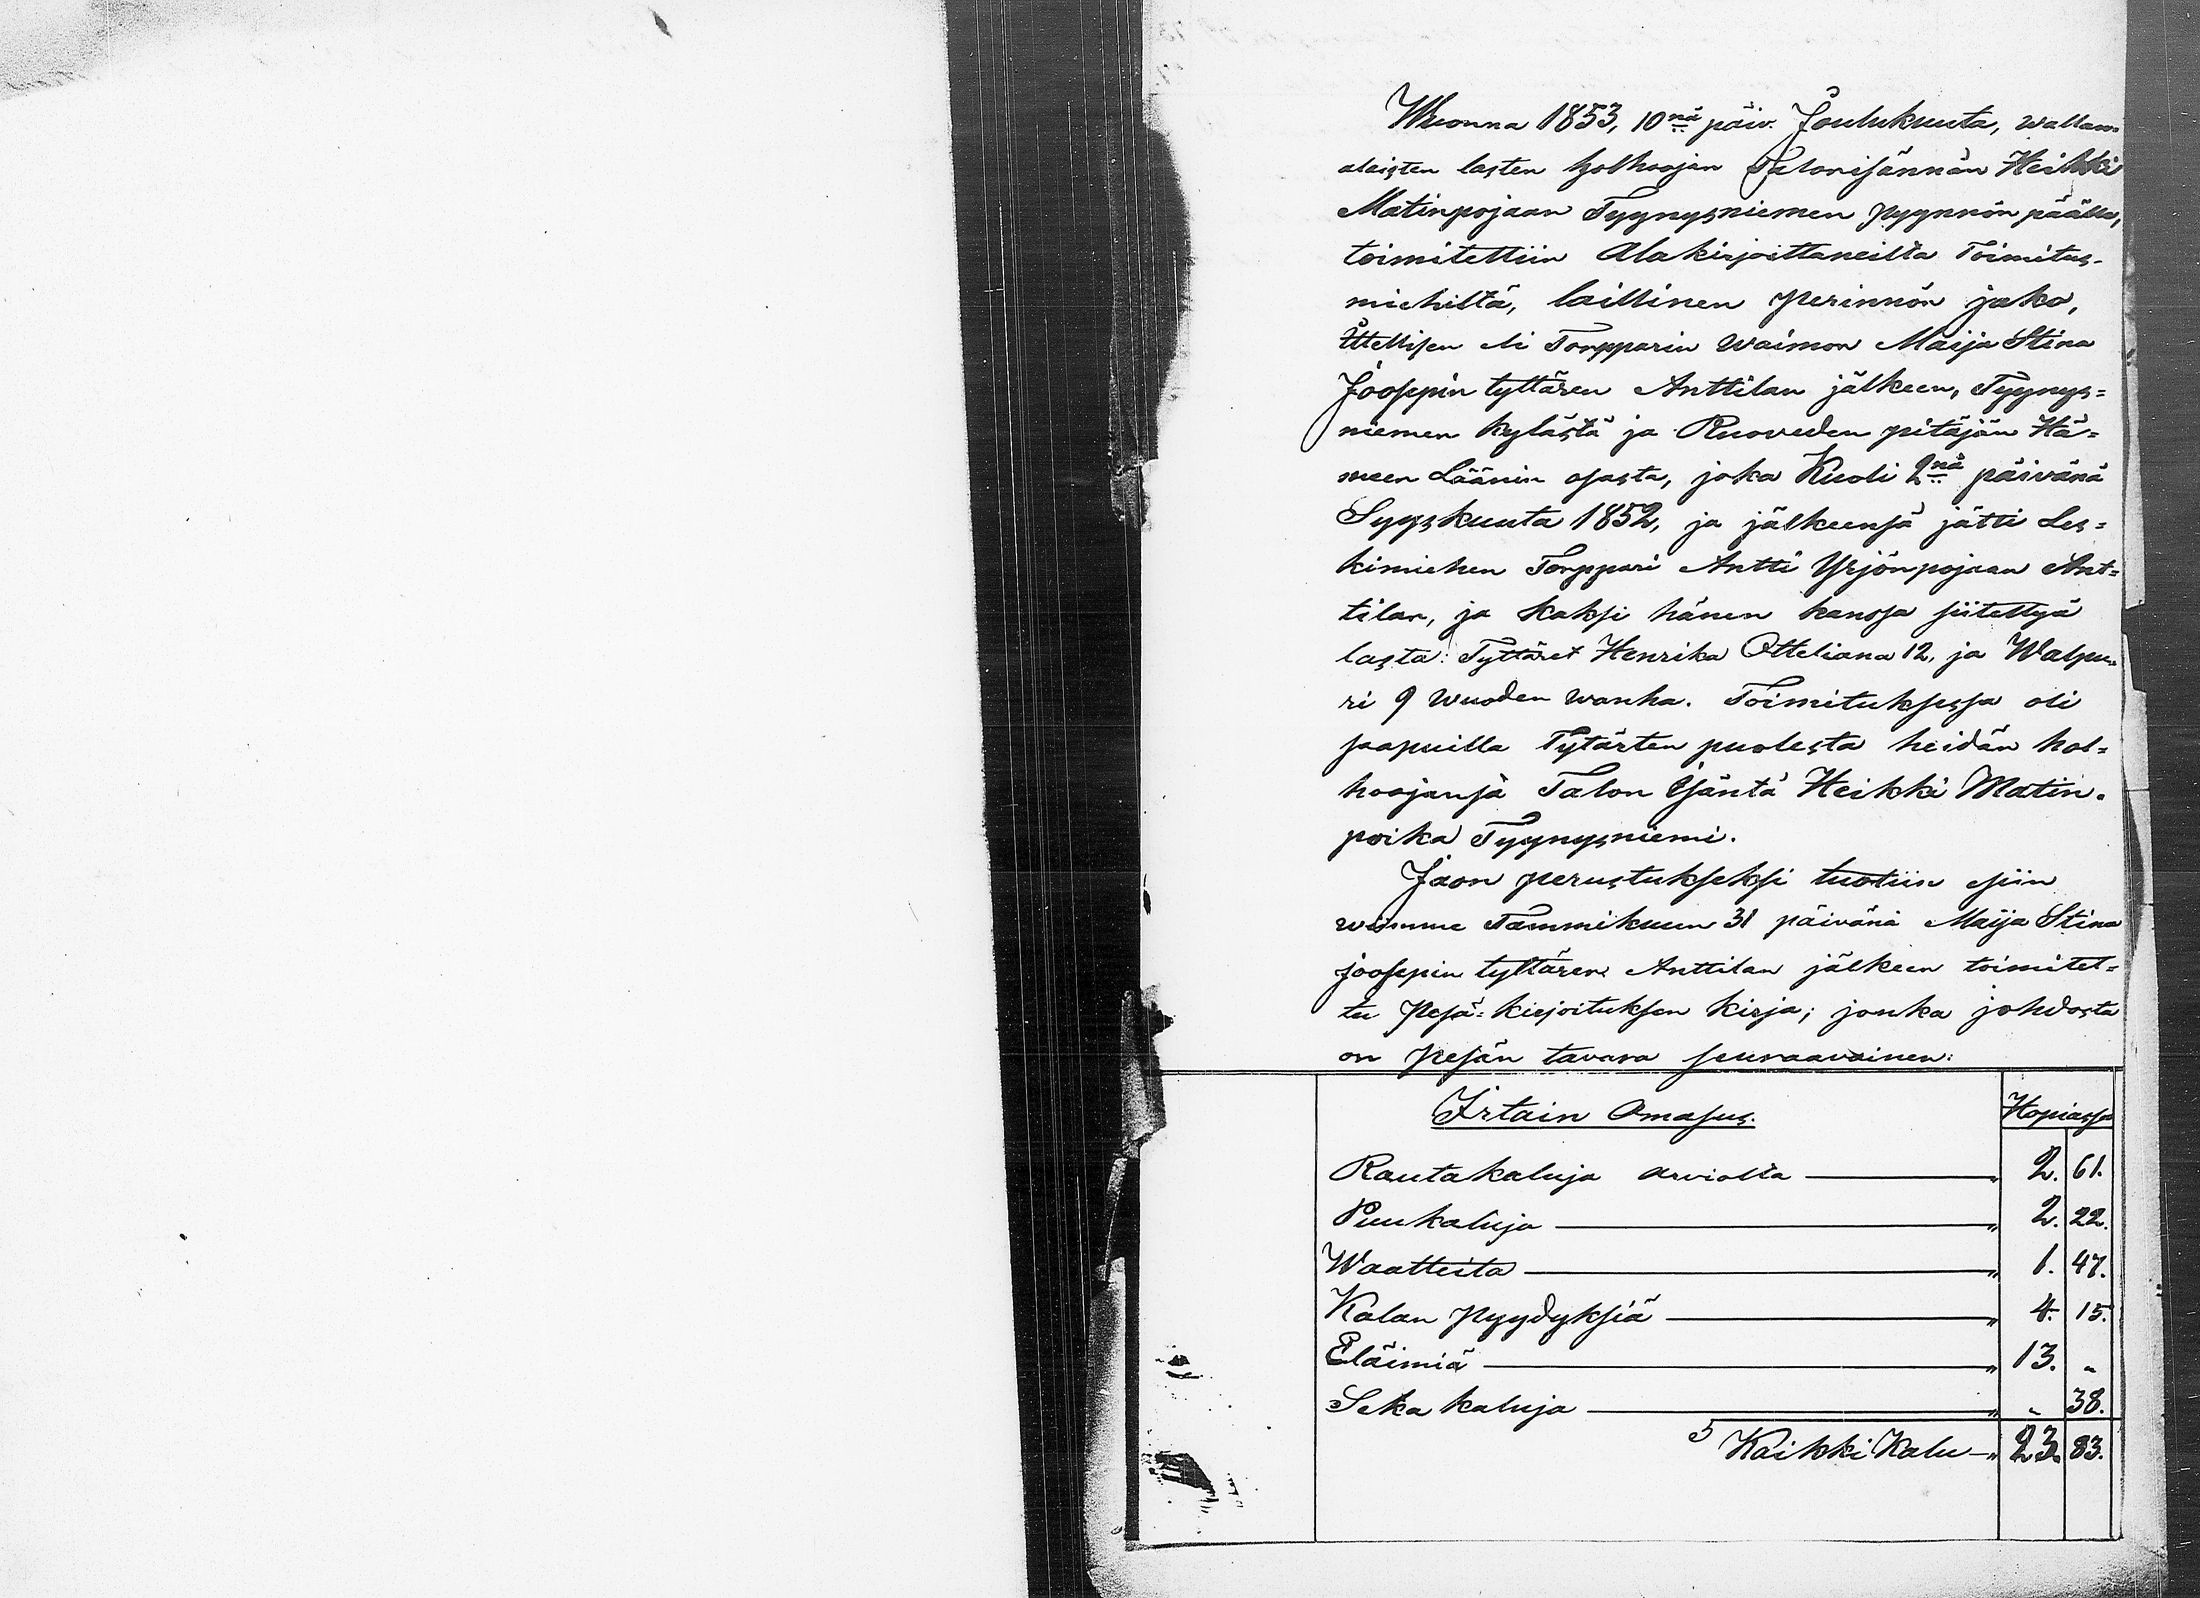 Wuonna 1853, 10nä päiv. Joulukuuta, wallan
alaisten lasten holhoojan Talonisännän Heikki
Matinpojaan Tyynysniemen pyynnön päälle,
toimitettiin Alakirjoittaneilta Toimitus-
miehiltä, laillinen perinnön jako,
Ittellisen eli Torpparin waimon Maija Stina
Jooseppin tyttären Anttilan jälkeen, Tyynys=
niemen kylästä ja Ruoveden pitäjän Hä=
meen Läänin osasta, joka Kuoli 2nä päivänä
Syyskuuta 1852, ja jälkeensä jätti Les=
kimiehen Torppari Antti Yrjönpojaan Ant=
tilan, ja kaksi hänen kanssa siitettyä
lasta: Tyttäret Henrika Otteliana 12, ja Walpu-
ri 9 wuoden wanha. Toimituksessa oli
saapuilla Tytärten puolesta heidän hol=
hoojansa Talon Isäntä Heikki Matin-
poika Tyynysniemi.
Jaon perustukseksi tuotiin esiin
wiimme Tammikuun 31 päivänä Maija Stina
jooseppin tyttären Anttilan jälkeen toimitet=
tu Pesä=kirjoituksen kirja; jonka johdosta
on pesän tavara seuraavainen:
Irtain Omasus. Hopiassa
Rautakaluja arviolta — „ 2. 61.
Puukaluja — „ 2. 22.
Waatteita — „ 1. 47.
Kalan pyydyksiä — „ 4. 15.
Eläimiä — „ 13. „
Seka kaluja — „ „ 38.
Kaikki Kalu — „ 23. 83.